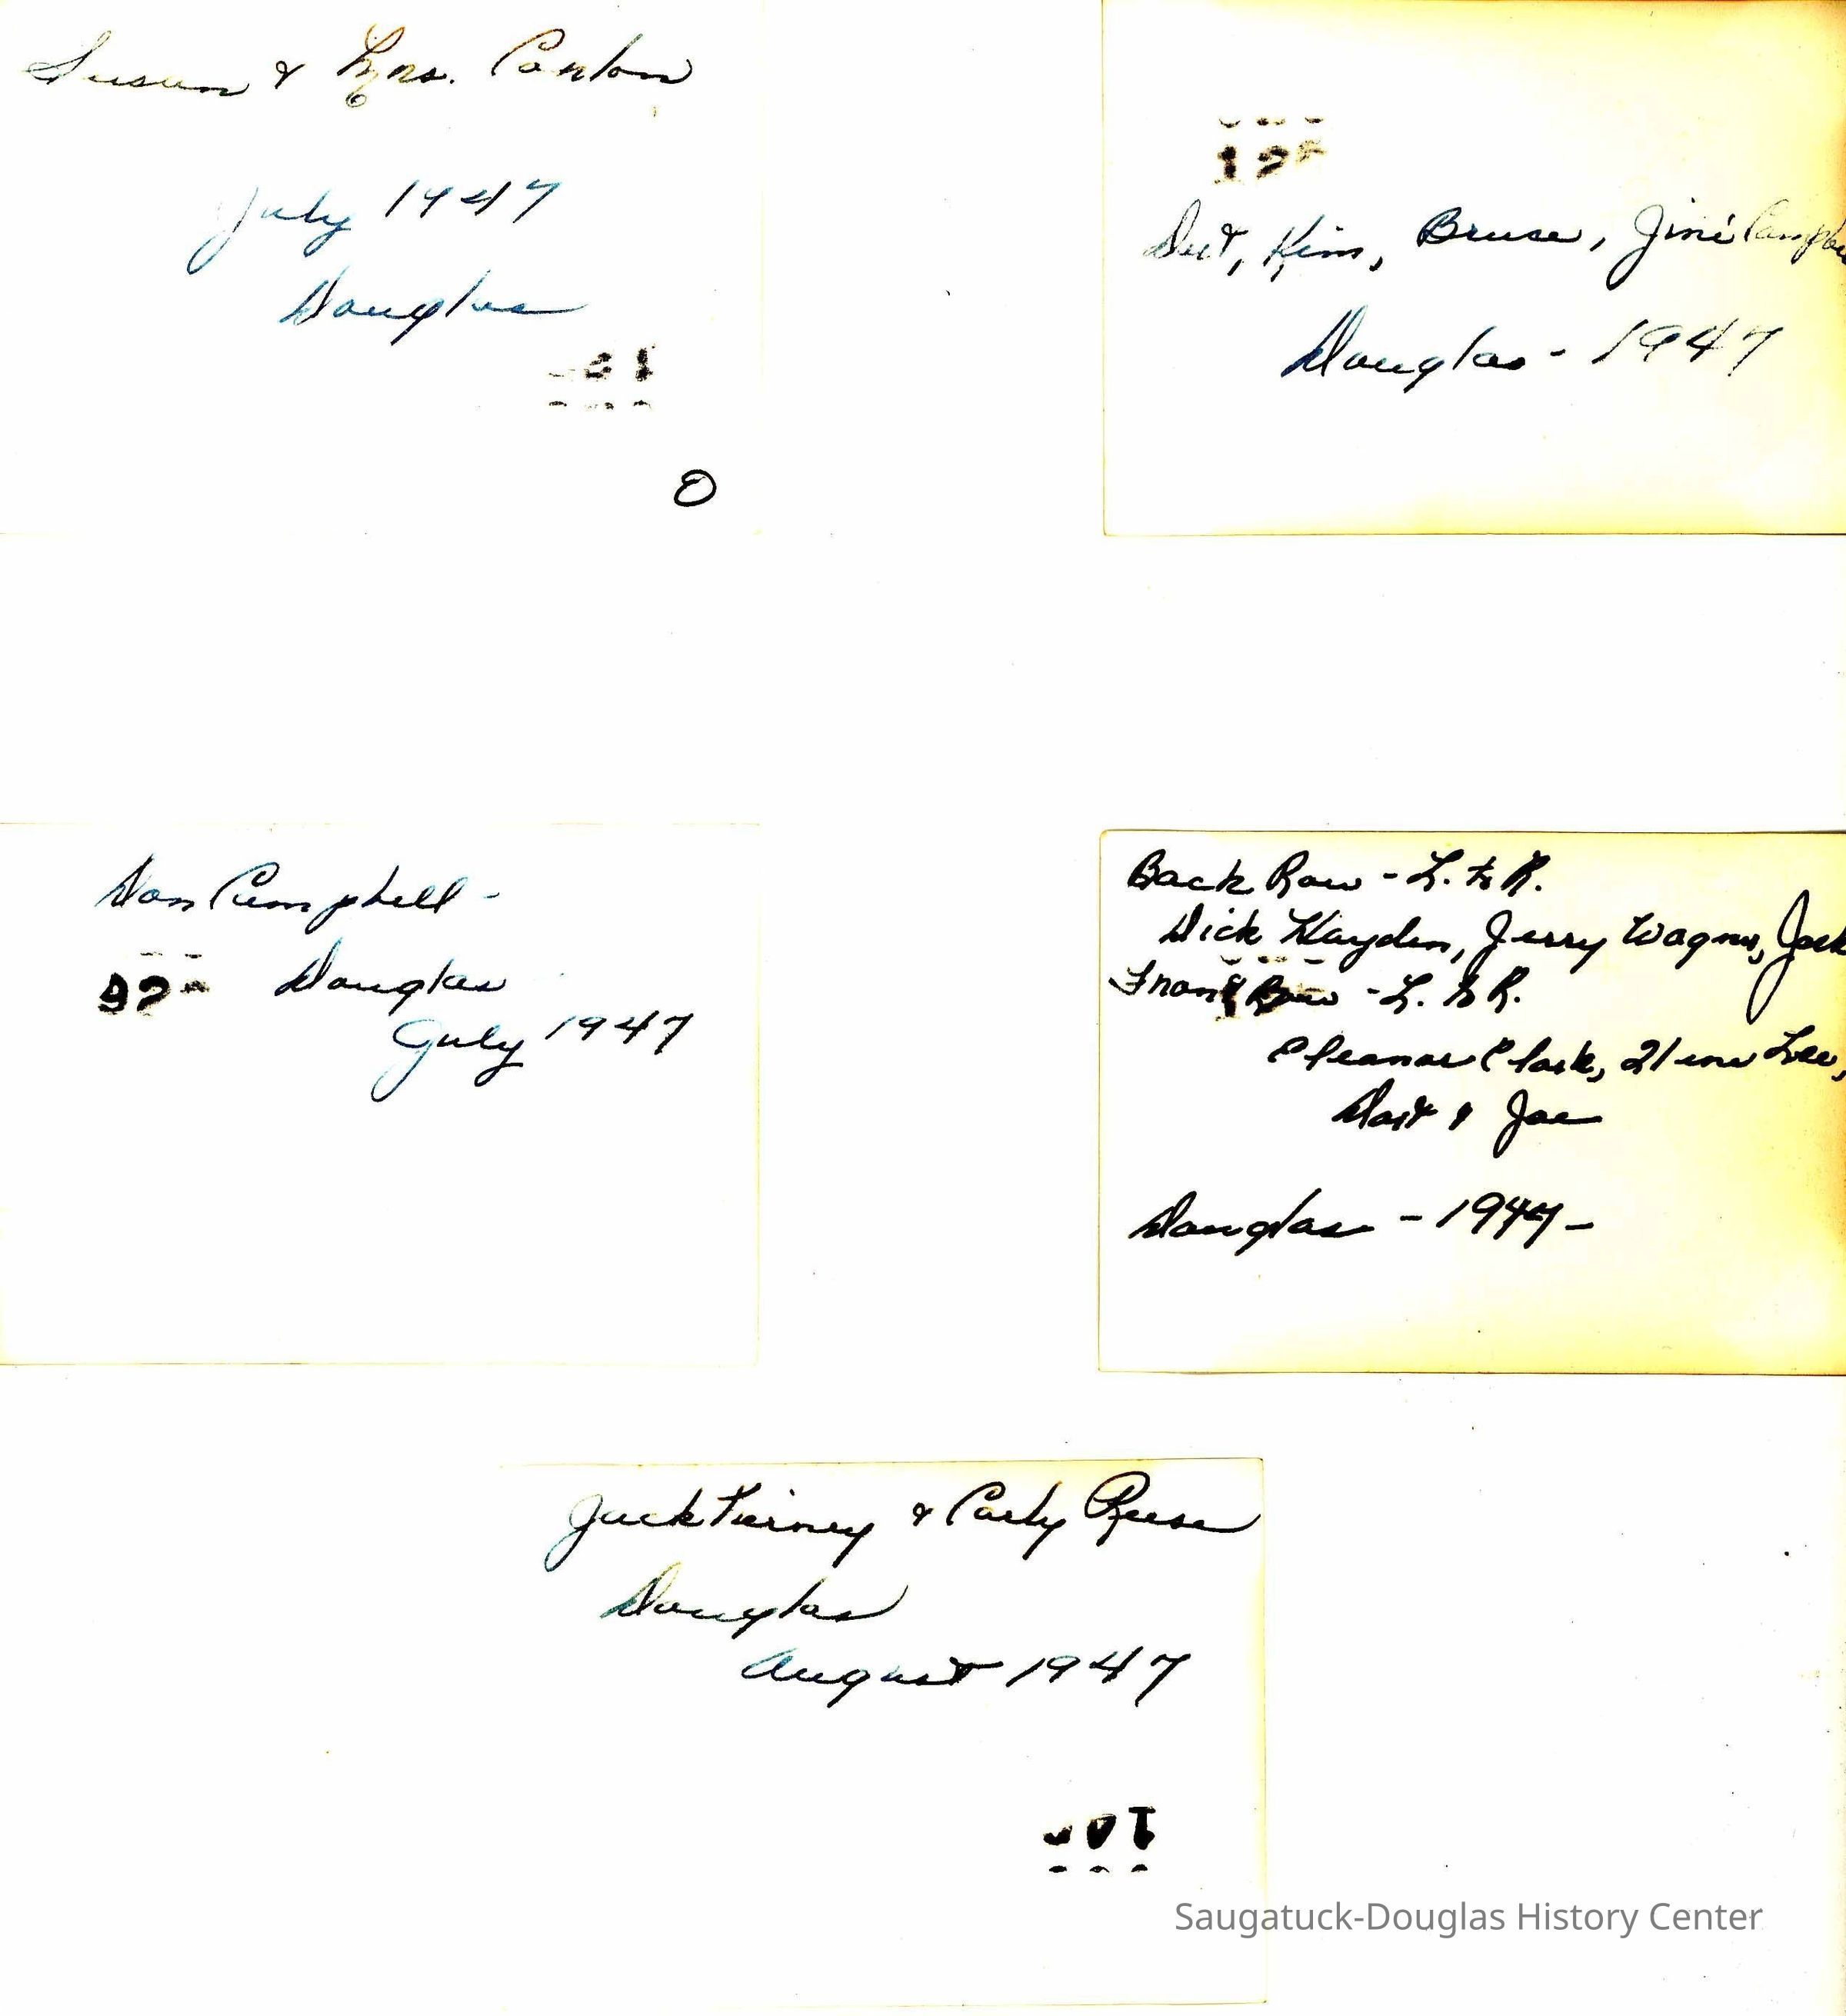 Susan & Mrs. Carlon
July 1947
Douglas
O
Dot, Kim, Bruse, Jini Campbe
Douglas - 1947
Don Campbell -
92
Douglas
July 1947
Back Row - L. to R.
Dick Hayden, Jerry Wagner, Jack
Front Row - L. to R.
Eleanor Clark, Ilene Lee,
Dot & Joe
Douglas - 1947 -
Jack Tierney & Carly Reese
Douglas
August 1947
10
Saugatuck-Douglas History Center